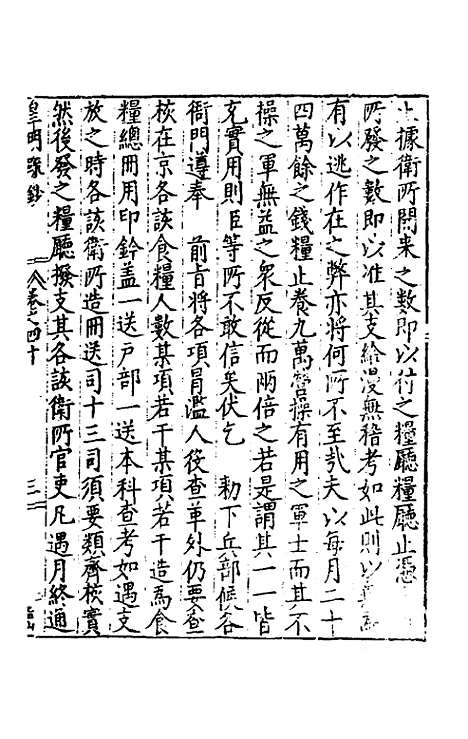 止據衛所開來之數即以付之糧廳糧廳止憑
所發之數即以准其支給漫無稽考如此則以
有以逃作在之弊亦將何所不至哉夫以每月二十
四萬餘之錢糧止養九萬營操有用之軍士而其不
操之軍無益之衆反從而兩倍之若是謂其一一皆
充實用則臣等所不敢信矣伏乞　勑下兵部候各
衙門遵奉　前旨將各項冐濫人役查革外仍要查
核在京各該食糧人數某項若干某項若干造爲食
糧總冊用印鈐盖一送戸部一送本科查考如遇支
放之時各該衛所造冊送司十三司須要類齊核實
然後發之糧廳撥支其各該衛所官吏凡遇月終通
皇明疏鈔
卷之四十
三